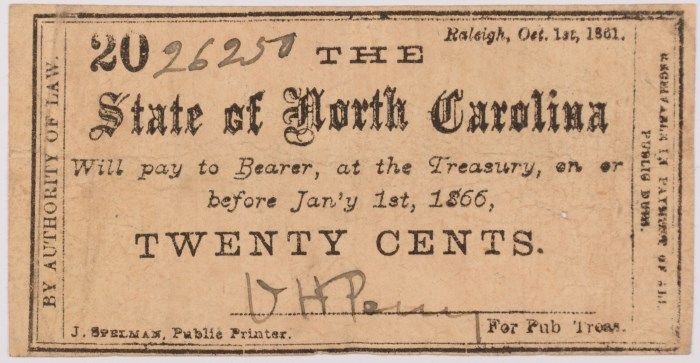 20 26250
Raleigh, Oct. 1st, 1861.
THE
State of North Carolina
Will pay to Bearer, at the Treasury, on or
before Jan'y 1st, 1866,
TWENTY CENTS.
For Pub Treas.
J. SPELMAN, Public Printer.
BY AUTHORITY OF LAW.
RECEIVABLE IN PAYMENT OF ALL
PUBLIC DUES.